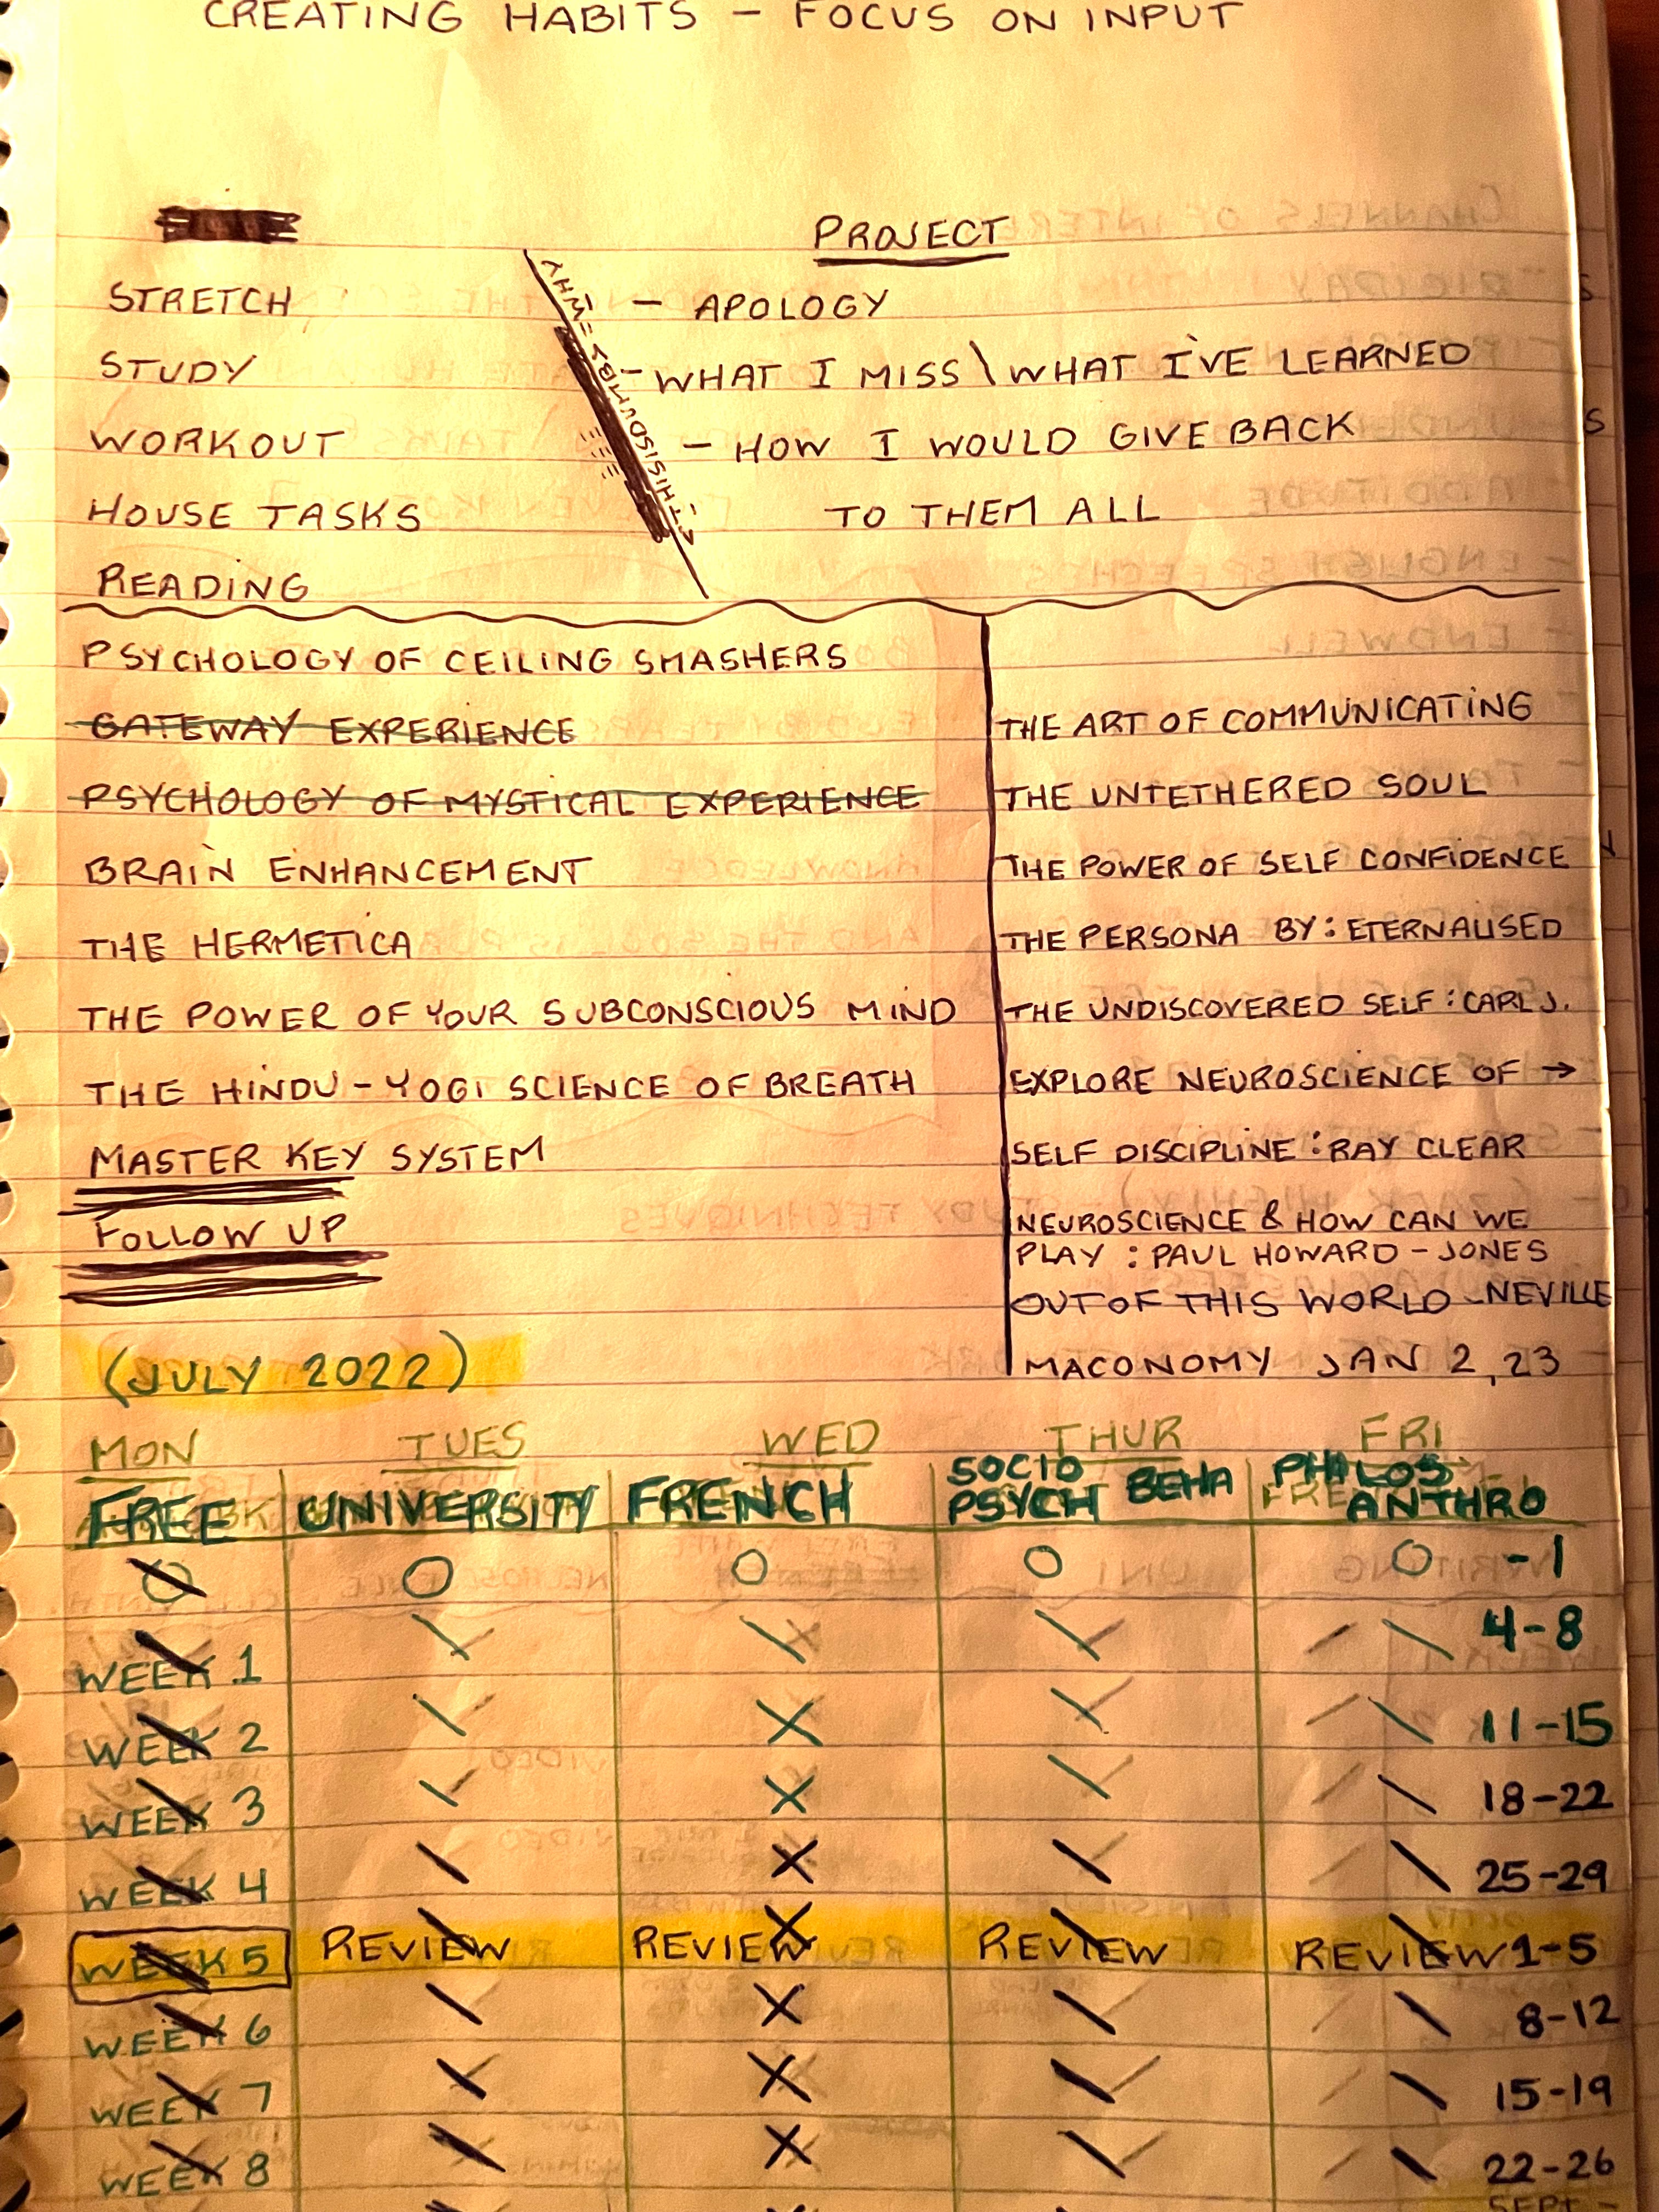 CREATING HABITS - FOCUS ON INPUT
PROJECT
STRETCH
STUDY
WORKOUT
HOUSE TASKS
READING
- APOLOGY
- WHAT I MISS \ WHAT I'VE LEARNED
- HOW I WOULD GIVE BACK
TO THEM ALL
PSYCHOLOGY OF CEILING SMASHERS
GATEWAY EXPERIENCE
PSYCHOLOGY OF MYSTICAL EXPERIENCE
BRAIN ENHANCEMENT
THE HERMETICA
THE POWER OF YOUR SUBCONSCIOUS MIND
THE HINDU-YOGI SCIENCE OF BREATH
MASTER KEY SYSTEM
FOLLOW UP
THE ART OF COMMUNICATING
THE UNTETHERED SOUL
THE POWER OF SELF CONFIDENCE
THE PERSONA BY: ETERNALISED
THE UNDISCOVERED SELF: CARL J.
EXPLORE NEUROSCIENCE OF →
SELF DISCIPLINE: RAY CLEAR
NEUROSCIENCE & HOW CAN WE
PLAY : PAUL HOWARD-JONES
OUT OF THIS WORLD - NEVILLE
MACONOMY JAN 2, 23
(JULY 2022)
MON TUES WED THUR FRI
FREE UNIVERSITY FRENCH SOCIO PSYCH BEHA PHILOS ANTHRO
O O O O O -1
WEEK 1 4-8
WEEK 2 11-15
WEEK 3 18-22
WEEK 4 25-29
WEEK 5 REVIEW REVIEW REVIEW REVIEW 1-5
WEEK 6 8-12
WEEK 7 15-19
WEEK 8 22-26
SEPT